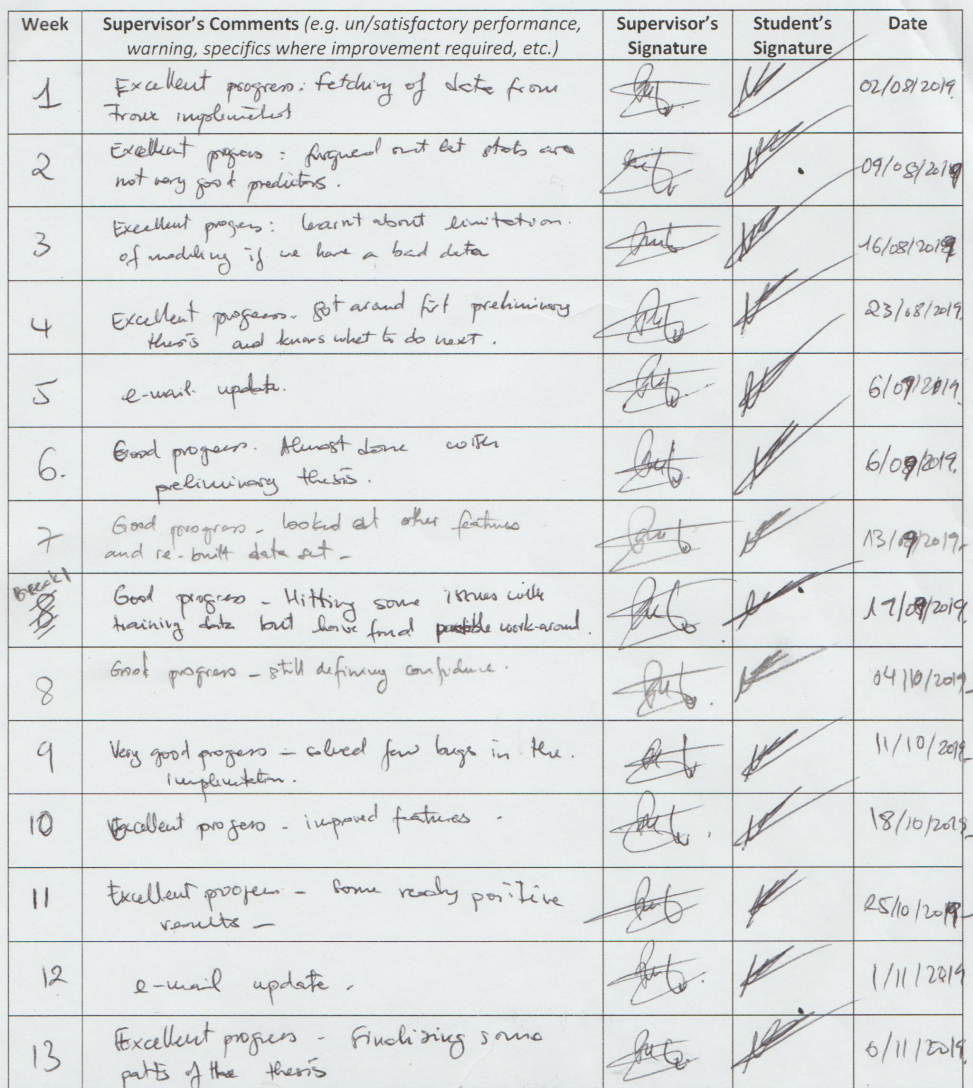 Week Supervisor's Comments (e.g. un/satisfactory performance, warning, specifics where improvement required, etc.) Supervisor's Signature Student's Signature Date
1 Excellent progress: fetching of data from 02/08/2019
implemented
2 Excellent progress: out bet stats are 09/08/2019
not very good predictors.
3 Excellent progress: learnt about limitation 16/08/2019
of modeling if we have a bad data
4 Excellent progress - got around first preliminary 23/08/2019
thesis and knows what to do next.
5 e-mail update. 6/09/2019
6. Good progress. Almost done with 6/09/2019
preliminary thesis.
7 Good progress - looked at other features 13/09/2019
and re-built data set -
Break 1
8 Good progress - Hitting some issues with /09/2019
training data but have found possible work-around.
8 Good progress - still defining confidence. 04/10/2019
9 Very good progress - solved few bugs in the. 11/10/2019
implementation.
10 Excellent progress - improved features - 18/10/2019
11 Excellent progress - Some really positive 25/10/2019
results -
12 e-mail update. 1/11/2019
13 Excellent progress - Finalizing some 6/11/2019
parts of the thesis